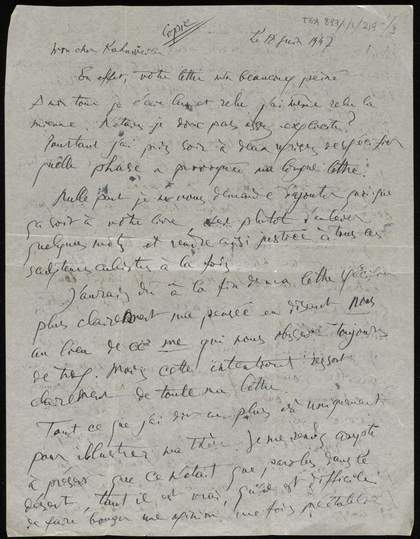 Copie
TGA 883/1/1/219 /3
Le 12 Juin 1947
Mon cher Kahnweiler
En effet, votre lettre m'a beaucoup peiné
A mon tour je l'ai lu et relu j'ai même relu la
mienne N'étais je donc pas assez explicite?
Pourtant j'ai pris soin à deux reprises de spécifier
quelle phrase a provoqué ma longue lettre.
Nulle part je ne vous demande d'ajouter quoi que
ça soit à votre livre plutôt d'enlever
quelques mots et rendre ainsi justice à tous les
sculpteurs cubistes à la fois
J'aurais dû à la fin de ma lettre préciser
plus clairement ma pensée en disant nous
au lieu de me qui nous obsède toujours
de trop. Mais cette intention ressort
clairement de toute ma lettre
Tout ce que j'ai dit en plus uniquement
pour illustrer ma thèse. Je me rends compte
à présent que ce n'était que paroles dans le
désert, tant il est vrai qu'il est difficile
de faire bouger une opinion une fois